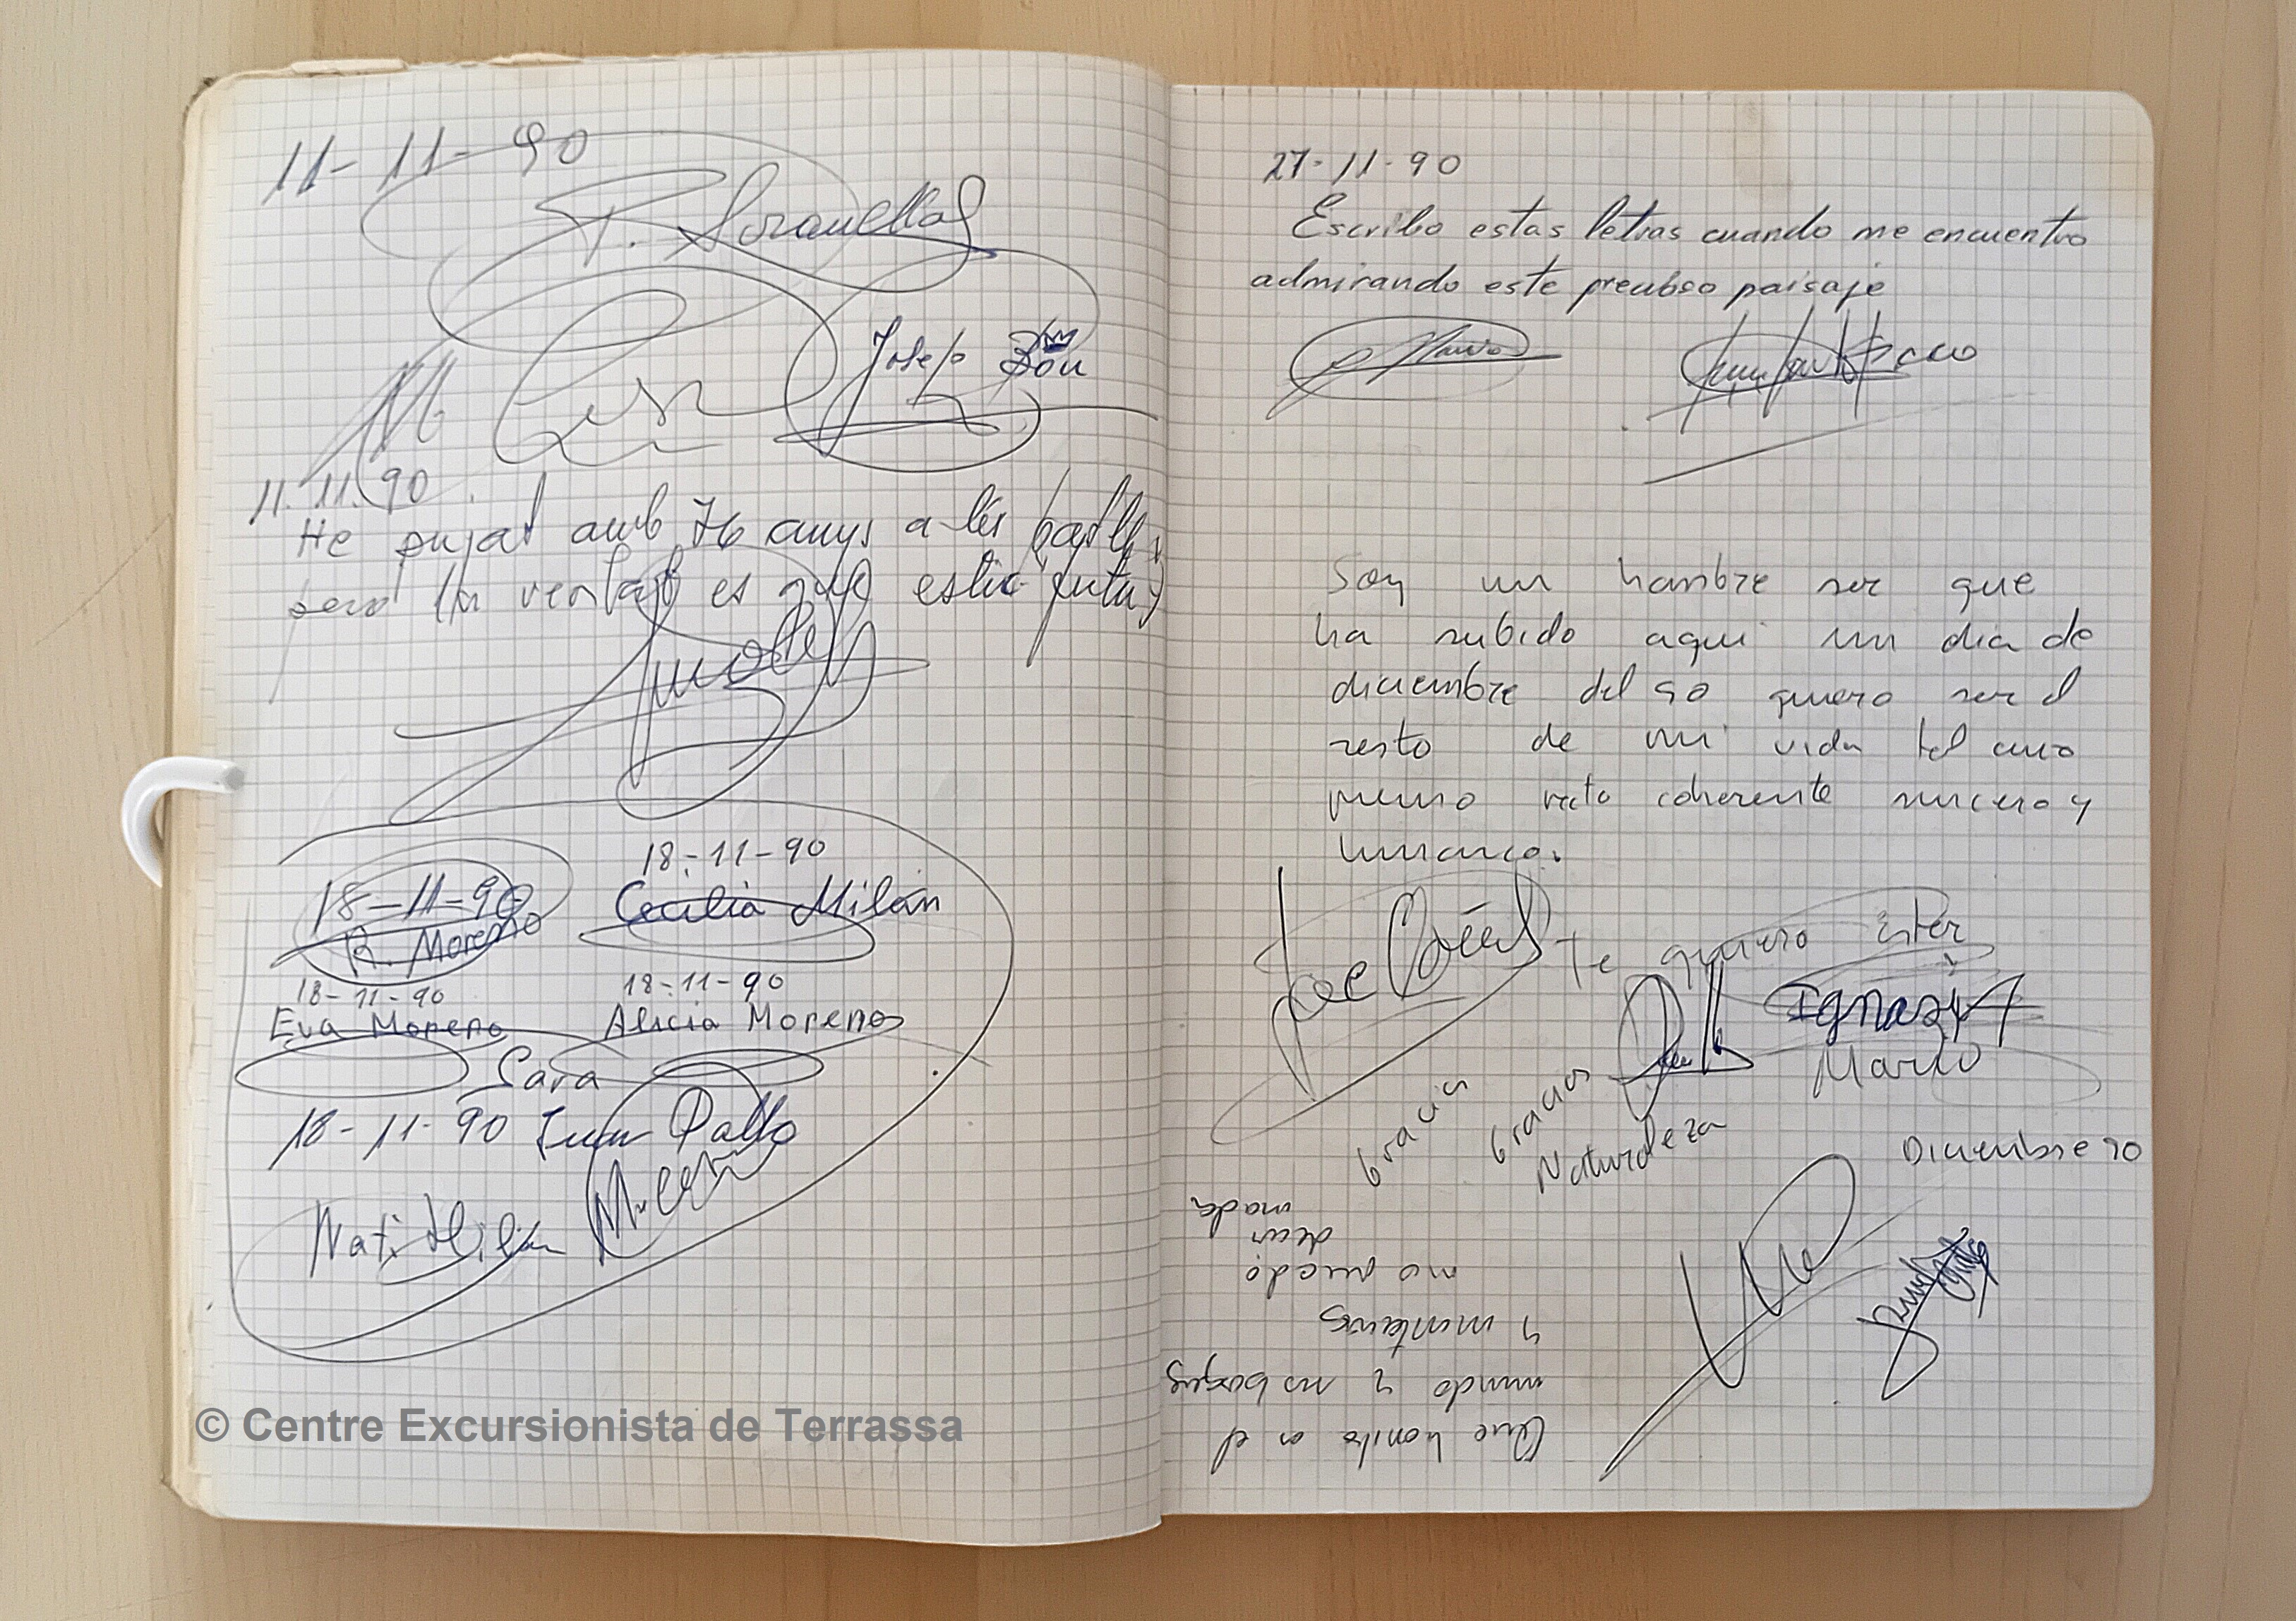 11-11-90
P. Soranellas
Josep Bou
11.11.90
He pujat amb 76 anys a les
pero la veritat es que estic
18-11-90
R. Moreno
18-11-90
Cecilia Milán
18-11-90
Eva Moreno
18-11-90
Alicia Moreno
Sara
18-11-90 Juan Pablo
Nati Milán
27-11-90
Escribo estas letras cuando me encuentro
admirando este precioso paisaje
Paco
Soy un hombre ser que
ha subido aqui un dia de
diciembre del 90 quiero ser el
resto de mi vida tal como
pienso recto coherente sincero y
humano.
Te quiero Ester
Ignasi
Mario
Gracias
Gracias
Naturaleza
Diciembre 90
Que bonito es el
mundo y sus bosques
y montañas
no puedo
decir
nada
© Centre Excursionista de Terrassa